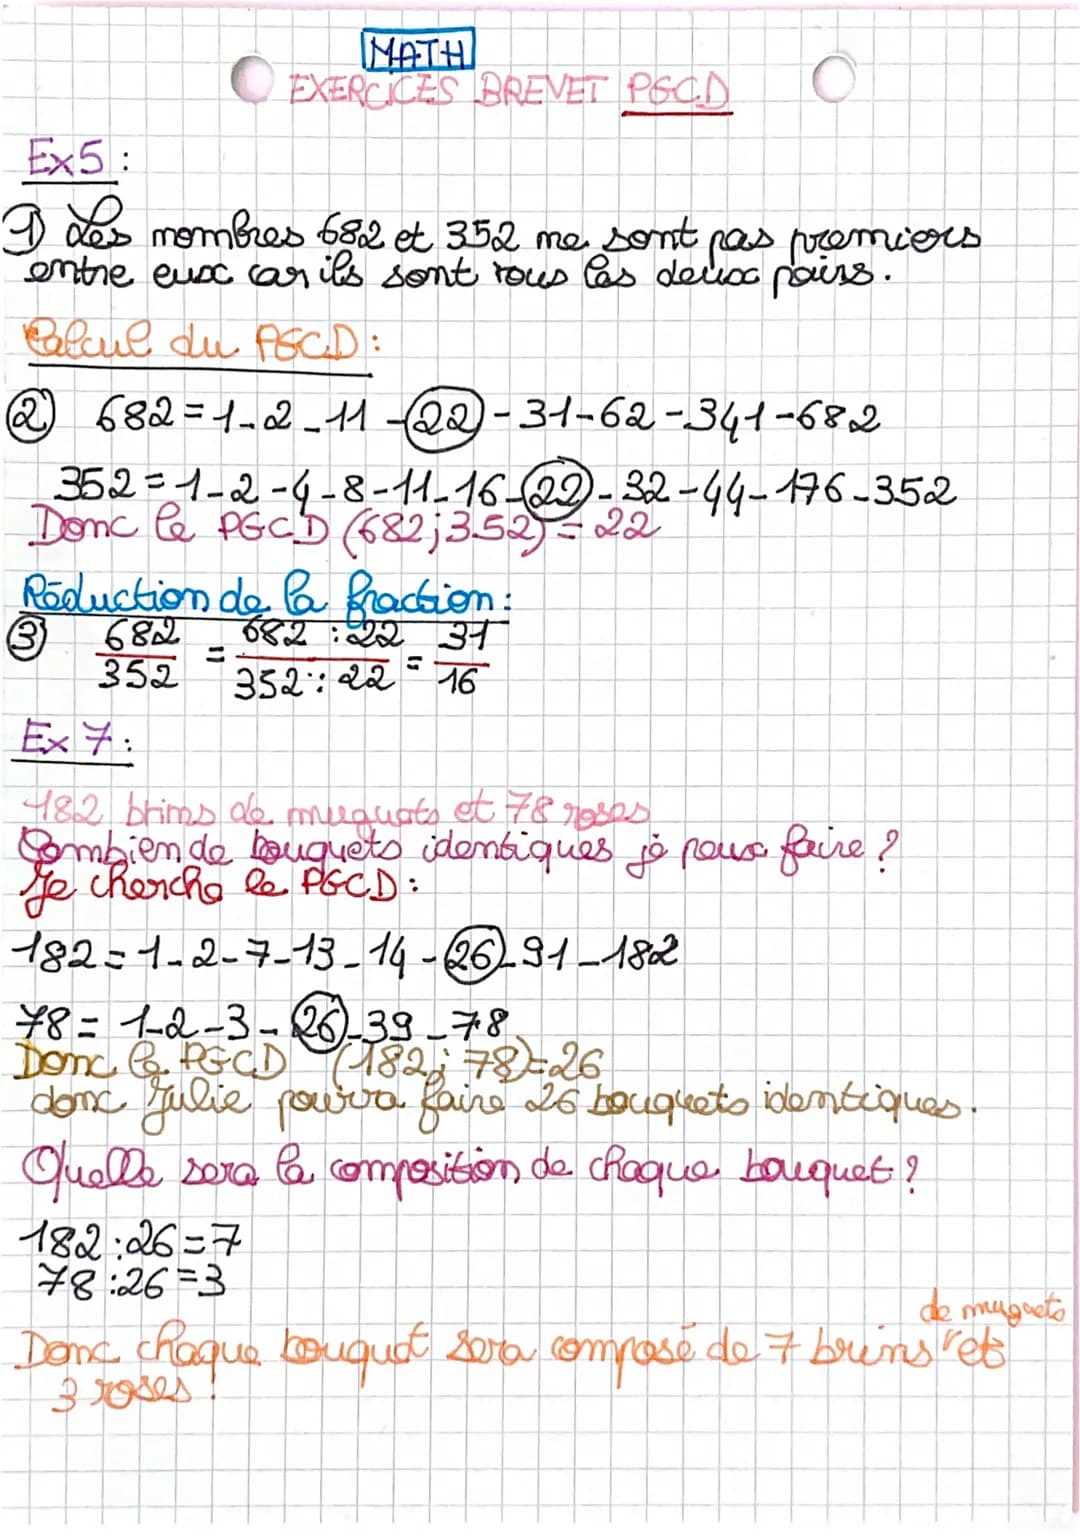 MATH
EXERCICES BREVET PGCD
Ex5 :
1) Les nombres 682 et 352 ne sont pas premiers
entre eux car ils sont tous les deux pairs.
Calcul du PGCD :
2) 682 = 1 - 2 - 11 - 22 - 31 - 62 - 341 - 682
352 = 1 - 2 - 4 - 8 - 11 - 16 - 22 - 32 - 44 - 176 - 352
Donc le PGCD (682 ; 352) = 22
Réduction de la fraction :
3) 682/352 = 682 : 22/352 : 22 = 31/16
Ex 7 :
182 brins de muguets et 78 roses
Combien de bouquets identiques je peux faire ?
Je cherche le PGCD :
182 = 1 - 2 - 7 - 13 - 14 - 26 - 91 - 182
78 = 1 - 2 - 3 - 26 - 39 - 78
Donc le PGCD (182 ; 78) = 26
donc Julie pourra faire 26 bouquets identiques.
Quelle sera la composition de chaque bouquet ?
182 : 26 = 7
78 : 26 = 3
de muguets
Donc chaque bouquet sera composé de 7 brins et
3 roses !